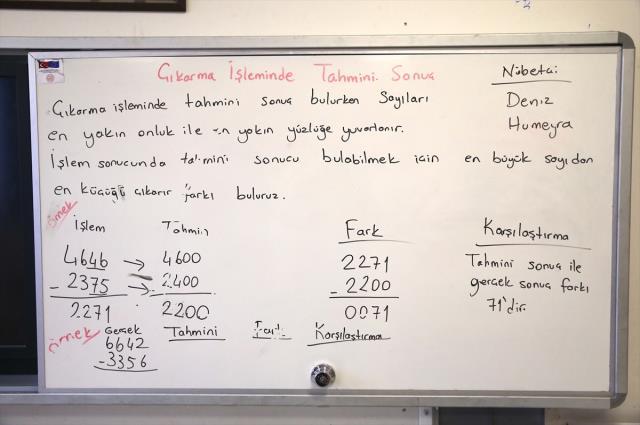 Çıkarma İşleminde Tahmini Sonuç
Nöbetçi
Deniz
Humeyra
Çıkarma işleminde tahmini sonuç bulurken sayıları
en yakın onluk ile en yakın yüzlüğe yuvarlanır.
İşlem sonucunda tahmini sonucu bulabilmek için en büyük sayıdan
en küçüğü çıkarır farkı buluruz.
örnek
İşlem Tahmin Fark Karşılaştırma
4646 → 4600
- 2375 → - 2400
2271 2200
2271
- 2200
0071
Tahmini sonuç ile
gerçek sonuç farkı
71'dir.
örnek
Gerçek Tahmini Fark Karşılaştırma
6642
- 3356